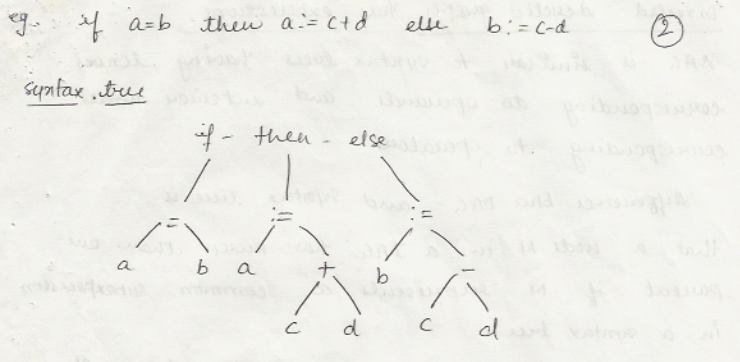 eg. if a=b then a:= c+d else b:= c-d ②
syntax tree
if - then - else
= := :=
a b a + b -
c d c d